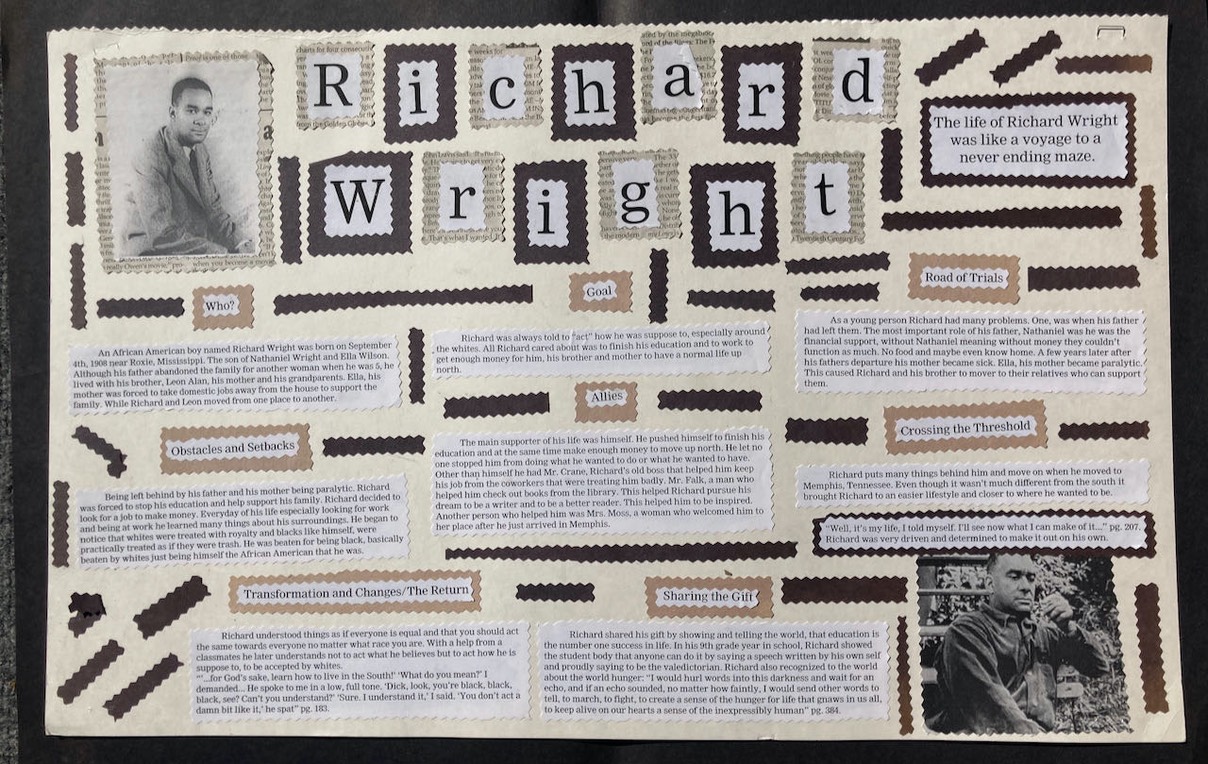 Richard
Wright
The life of Richard Wright
was like a voyage to a
never ending maze.
Who?
An African American boy named Richard Wright was born on September
4th, 1908 near Roxie, Mississippi. The son of Nathaniel Wright and Ella Wilson.
Although his father abandoned the family for another woman when he was 5, he
lived with his brother, Leon Alan, his mother and his grandparents. Ella, his
mother was forced to take domestic jobs away from the house to support the
family. While Richard and Leon moved from one place to another.
Goal
Richard was always told to "act" how he was suppose to, especially around
the whites. All Richard cared about was to finish his education and to work to
get enough money for him, his brother and mother to have a normal life up
north.
Road of Trials
As a young person Richard had many problems. One, was when his father
had left them. The most important role of his father, Nathaniel was he was the
financial support, without Nathaniel meaning without money they couldn't
function as much. No food and maybe even know home. A few years later after
his fathers departure his mother became sick. Ella, his mother became paralytic.
This caused Richard and his brother to mover to their relatives who can support
them.
Obstacles and Setbacks
Being left behind by his father and his mother being paralytic. Richard
was forced to stop his education and help support his family. Richard decided to
look for a job to make money. Everyday of his life especially looking for work
and being at work he learned many things about his surroundings. He began to
notice that whites were treated with royalty and blacks like himself, were
practically treated as if they were trash. He was beaten for being black, basically
beaten by whites just being himself the African American that he was.
Allies
The main supporter of his life was himself. He pushed himself to finish his
education and at the same time make enough money to move up north. He let no
one stopped him from doing what he wanted to do or what he wanted to have.
Other than himself he had Mr. Crane, Richard's old boss that helped him keep
his job from the coworkers that were treating him badly. Mr. Falk, a man who
helped him check out books from the library. This helped Richard pursue his
dream to be a writer and to be a better reader. This helped him to be inspired.
Another person who helped him was Mrs. Moss, a woman who welcomed him to
her place after he just arrived in Memphis.
Crossing the Threshold
Richard puts many things behind him and move on when he moved to
Memphis, Tennessee. Even though it wasn't much different from the south it
brought Richard to an easier lifestyle and closer to where he wanted to be.
"Well, it's my life, I told myself. I'll see now what I can make of it..." pg. 207.
Richard was very driven and determined to make it out on his own.
Transformation and Changes/The Return
Richard understood things as if everyone is equal and that you should act
the same towards everyone no matter what race you are. With a help from a
classmates he later understands not to act what he believes but to act how he is
suppose to, to be accepted by whites.
"'...for God's sake, learn how to live in the South!' 'What do you mean?' I
demanded... He spoke to me in a low, full tone. 'Dick, look, you're black, black,
black, see? Can't you understand?' 'Sure. I understand it,' I said. 'You don't act a
damn bit like it,' he spat" pg. 183.
Sharing the Gift
Richard shared his gift by showing and telling the world, that education is
the number one success in life. In his 9th grade year in school, Richard showed
the student body that anyone can do it by saying a speech written by his own self
and proudly saying to be the valedictorian. Richard also recognized to the world
about the world hunger: "I would hurl words into this darkness and wait for an
echo, and if an echo sounded, no matter how faintly, I would send other words to
tell, to march, to fight, to create a sense of the hunger for life that gnaws in us all,
to keep alive on our hearts a sense of the inexpressibly human" pg. 384.